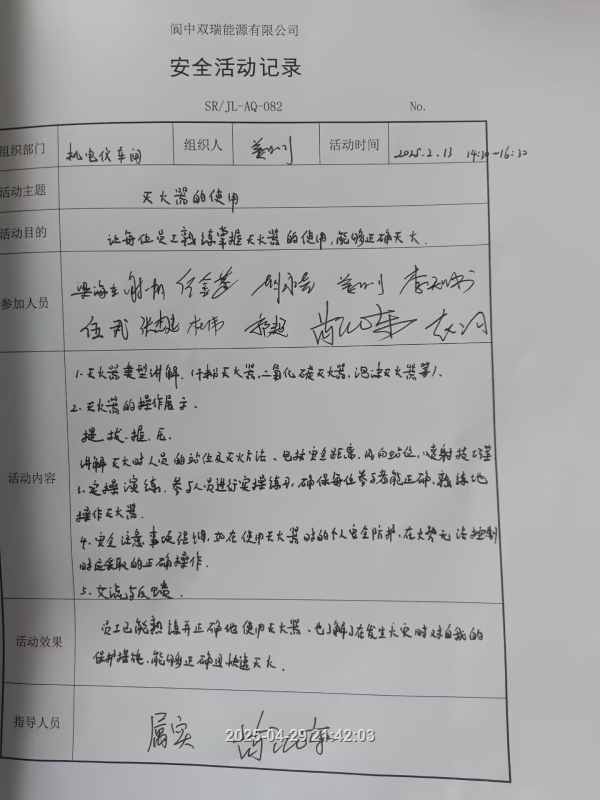 阆中双瑞能源有限公司
安全活动记录
SR/JL-AQ-082 No.
组织部门 机电仪车间 组织人 活动时间 2025.2.13 14:30-16:30
活动主题 灭火器的使用
活动目的 让每位员工熟练掌握灭火器的使用,能够正确灭火.
参加人员
伍武
活动内容
1.灭火器类型讲解.(干粉灭火器,二氧化碳灭火器,泡沫灭火器等).
2.灭火器的操作展示.
提.拔.握.压.
讲解灭火时人员的站位及灭火方法、包括安全距离、风向站位,喷射技巧等
3.实操演练.参与人员进行实操练习,确保每位参与者能正确.熟练地
操作灭火器.
4.安全注意事项强调,如在使用灭火器时的个人安全防护,在火势无法控制
时应采取的正确操作.
5.交流与反馈.
活动效果 员工已能熟练并正确地使用灭火器、也了解了在发生火灾时对自我的
保护措施,能够正确且快速灭火.
指导人员 属实
2025-04-29 21:42:03